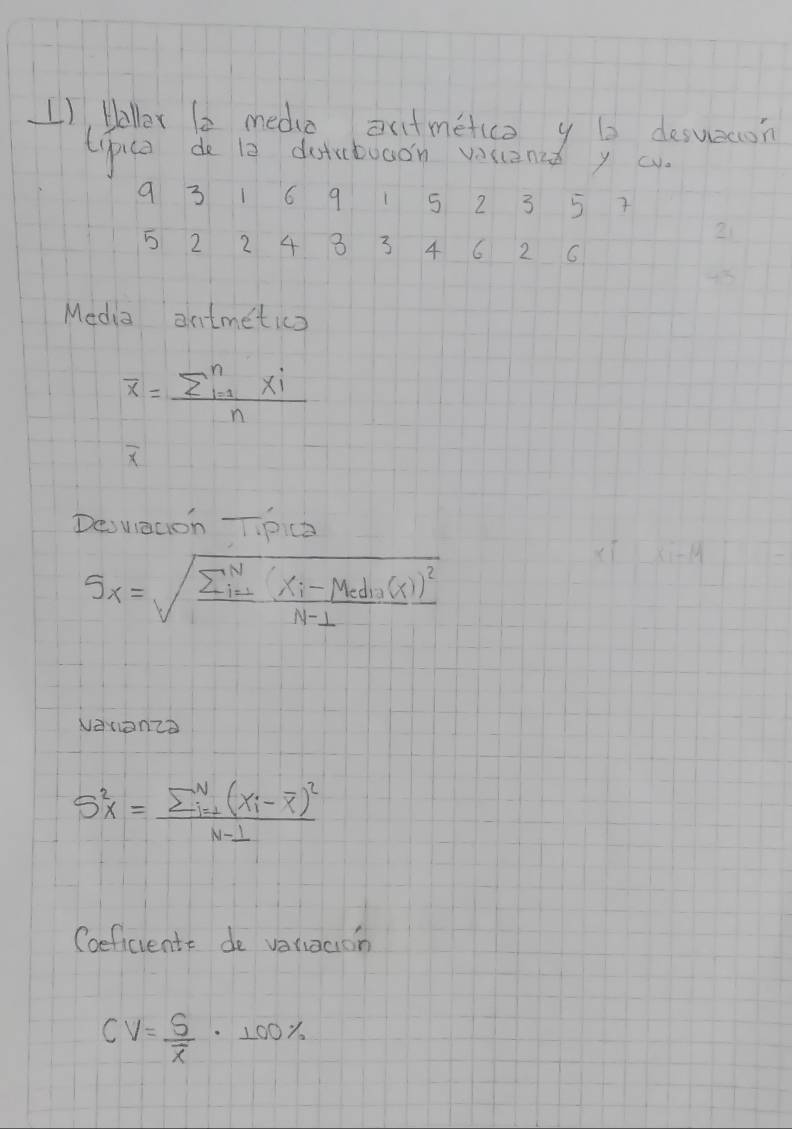 1) Hallar la media aritmética y la desviación
típica de la distribución varianza y cv.
9 3 1 6 9 1 5 2 3 5 7
5 2 2 4 8 3 4 6 2 6
21
Media aritmética
x̄ = Σⁿᵢ₌₁ xi / n
x̄
Desviación Típica
xi xi-M
Sx = √(Σᴺᵢ₌₁ (xi - Media(x))² / N-1)
varianza
S²x = Σᴺᵢ₌₁ (xi - x̄)² / N-1
Coeficiente de variación
CV = S/x̄ · 100%